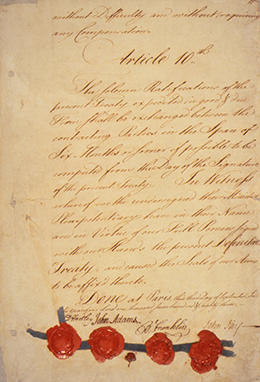 without Difficulty and without requiring
any Compensation.
Article 10th
The solemn Ratifications of the
present Treaty expedited in good & due
Form shall be exchanged between the
contracting Parties in the Space of
Six Months or sooner if possible to be
computed from the Day of the Signature
of the present Treaty. In Witness
whereof we the undersigned their Ministers
Plenipotentiary have in their Name
and in Virtue of our Full Powers signed
with our Hands the present Definitive
Treaty, and caused the Seals of our Arms
to be affixed thereto.
Done at Paris this third Day of September
D Hartley John Adams B Franklin John Jay